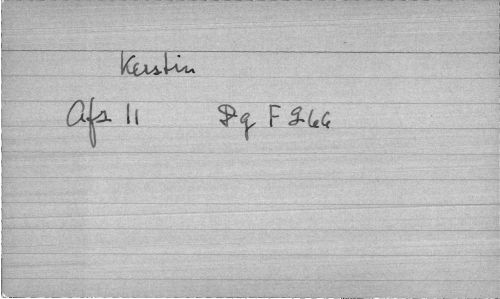 Kerstin
Afs 11 Dg F 266